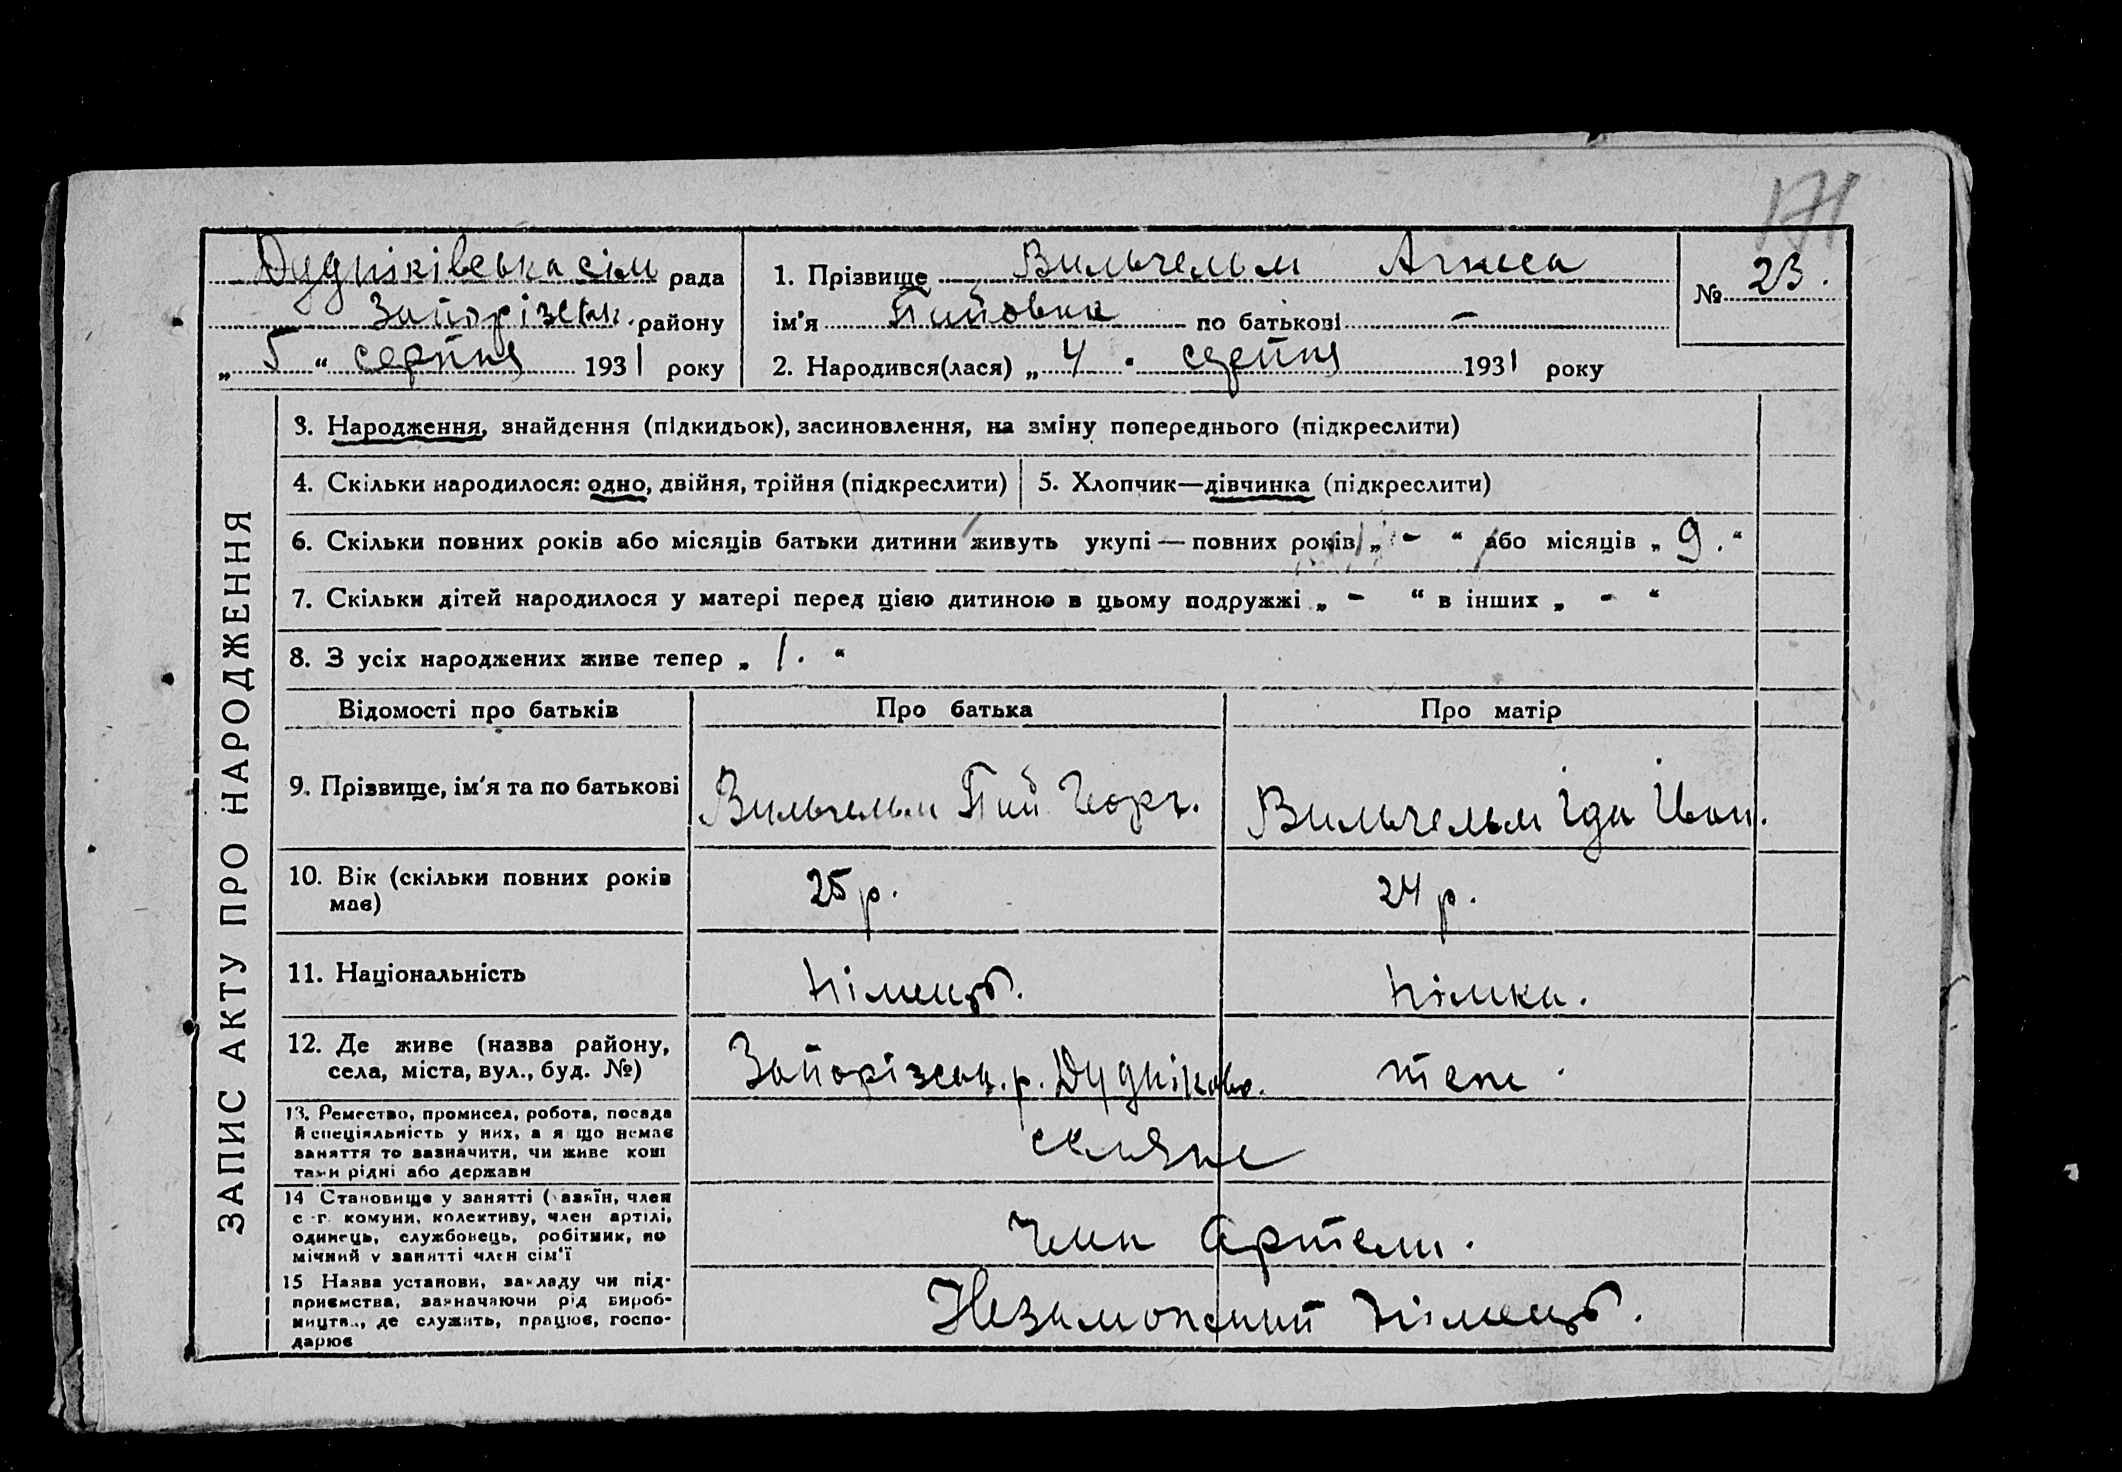 171
Дудніківська сіл рада
Запорізьк. району
„ 5 “ серпня 1931 року
1. Прізвище Вильгельм Агнеса
ім'я Пийовна по батькові –
2. Народився(лася) „ 4 “ серпня 1931 року
№ 23.
ЗАПИС АКТУ ПРО НАРОДЖЕННЯ
3. Народження, знайдення (підкидьок), засиновлення, на зміну попереднього (підкреслити)
4. Скільки народилося: одно, двійня, трійня (підкреслити)
5. Хлопчик—дівчинка (підкреслити)
6. Скільки повних років або місяців батьки дитини живуть укупі — повних років „ – “ або місяців „ 9. “
7. Скільки дітей народилося у матері перед цією дитиною в цьому подружжі „ – “ в інших „ – “
8. З усіх народжених живе тепер „ 1. “
Відомості про батьків
Про батька
Про матір
9. Прізвище, ім'я та по батькові
Вильгельм Пий Георг.
Вильгельм Іда Іван.
10. Вік (скільки повних років
має)
25 р.
24 р.
11. Національність
Німець.
Німка.
12. Де живе (назва району,
села, міста, вул., буд. №)
Запорізьк. р. Дудніково.
теж
13. Ремество, промисел, робота, посада
й спеціяльність у них, а я що немає
заняття то зазначити, чи живе кош
тами рідні або держави
селяне
14 Становище у занятті ( азяїн, член
с -г. комуни, колективу, член артілі,
одинець, службовець, робітник, по
мічний у занятті член сім'ї
Член Артели.
15 Назва установи, закладу чи під-
приємства, зазначаючи рід вироб-
ництв., де служить, працює, госпо-
дарює
Незаможний Німець.